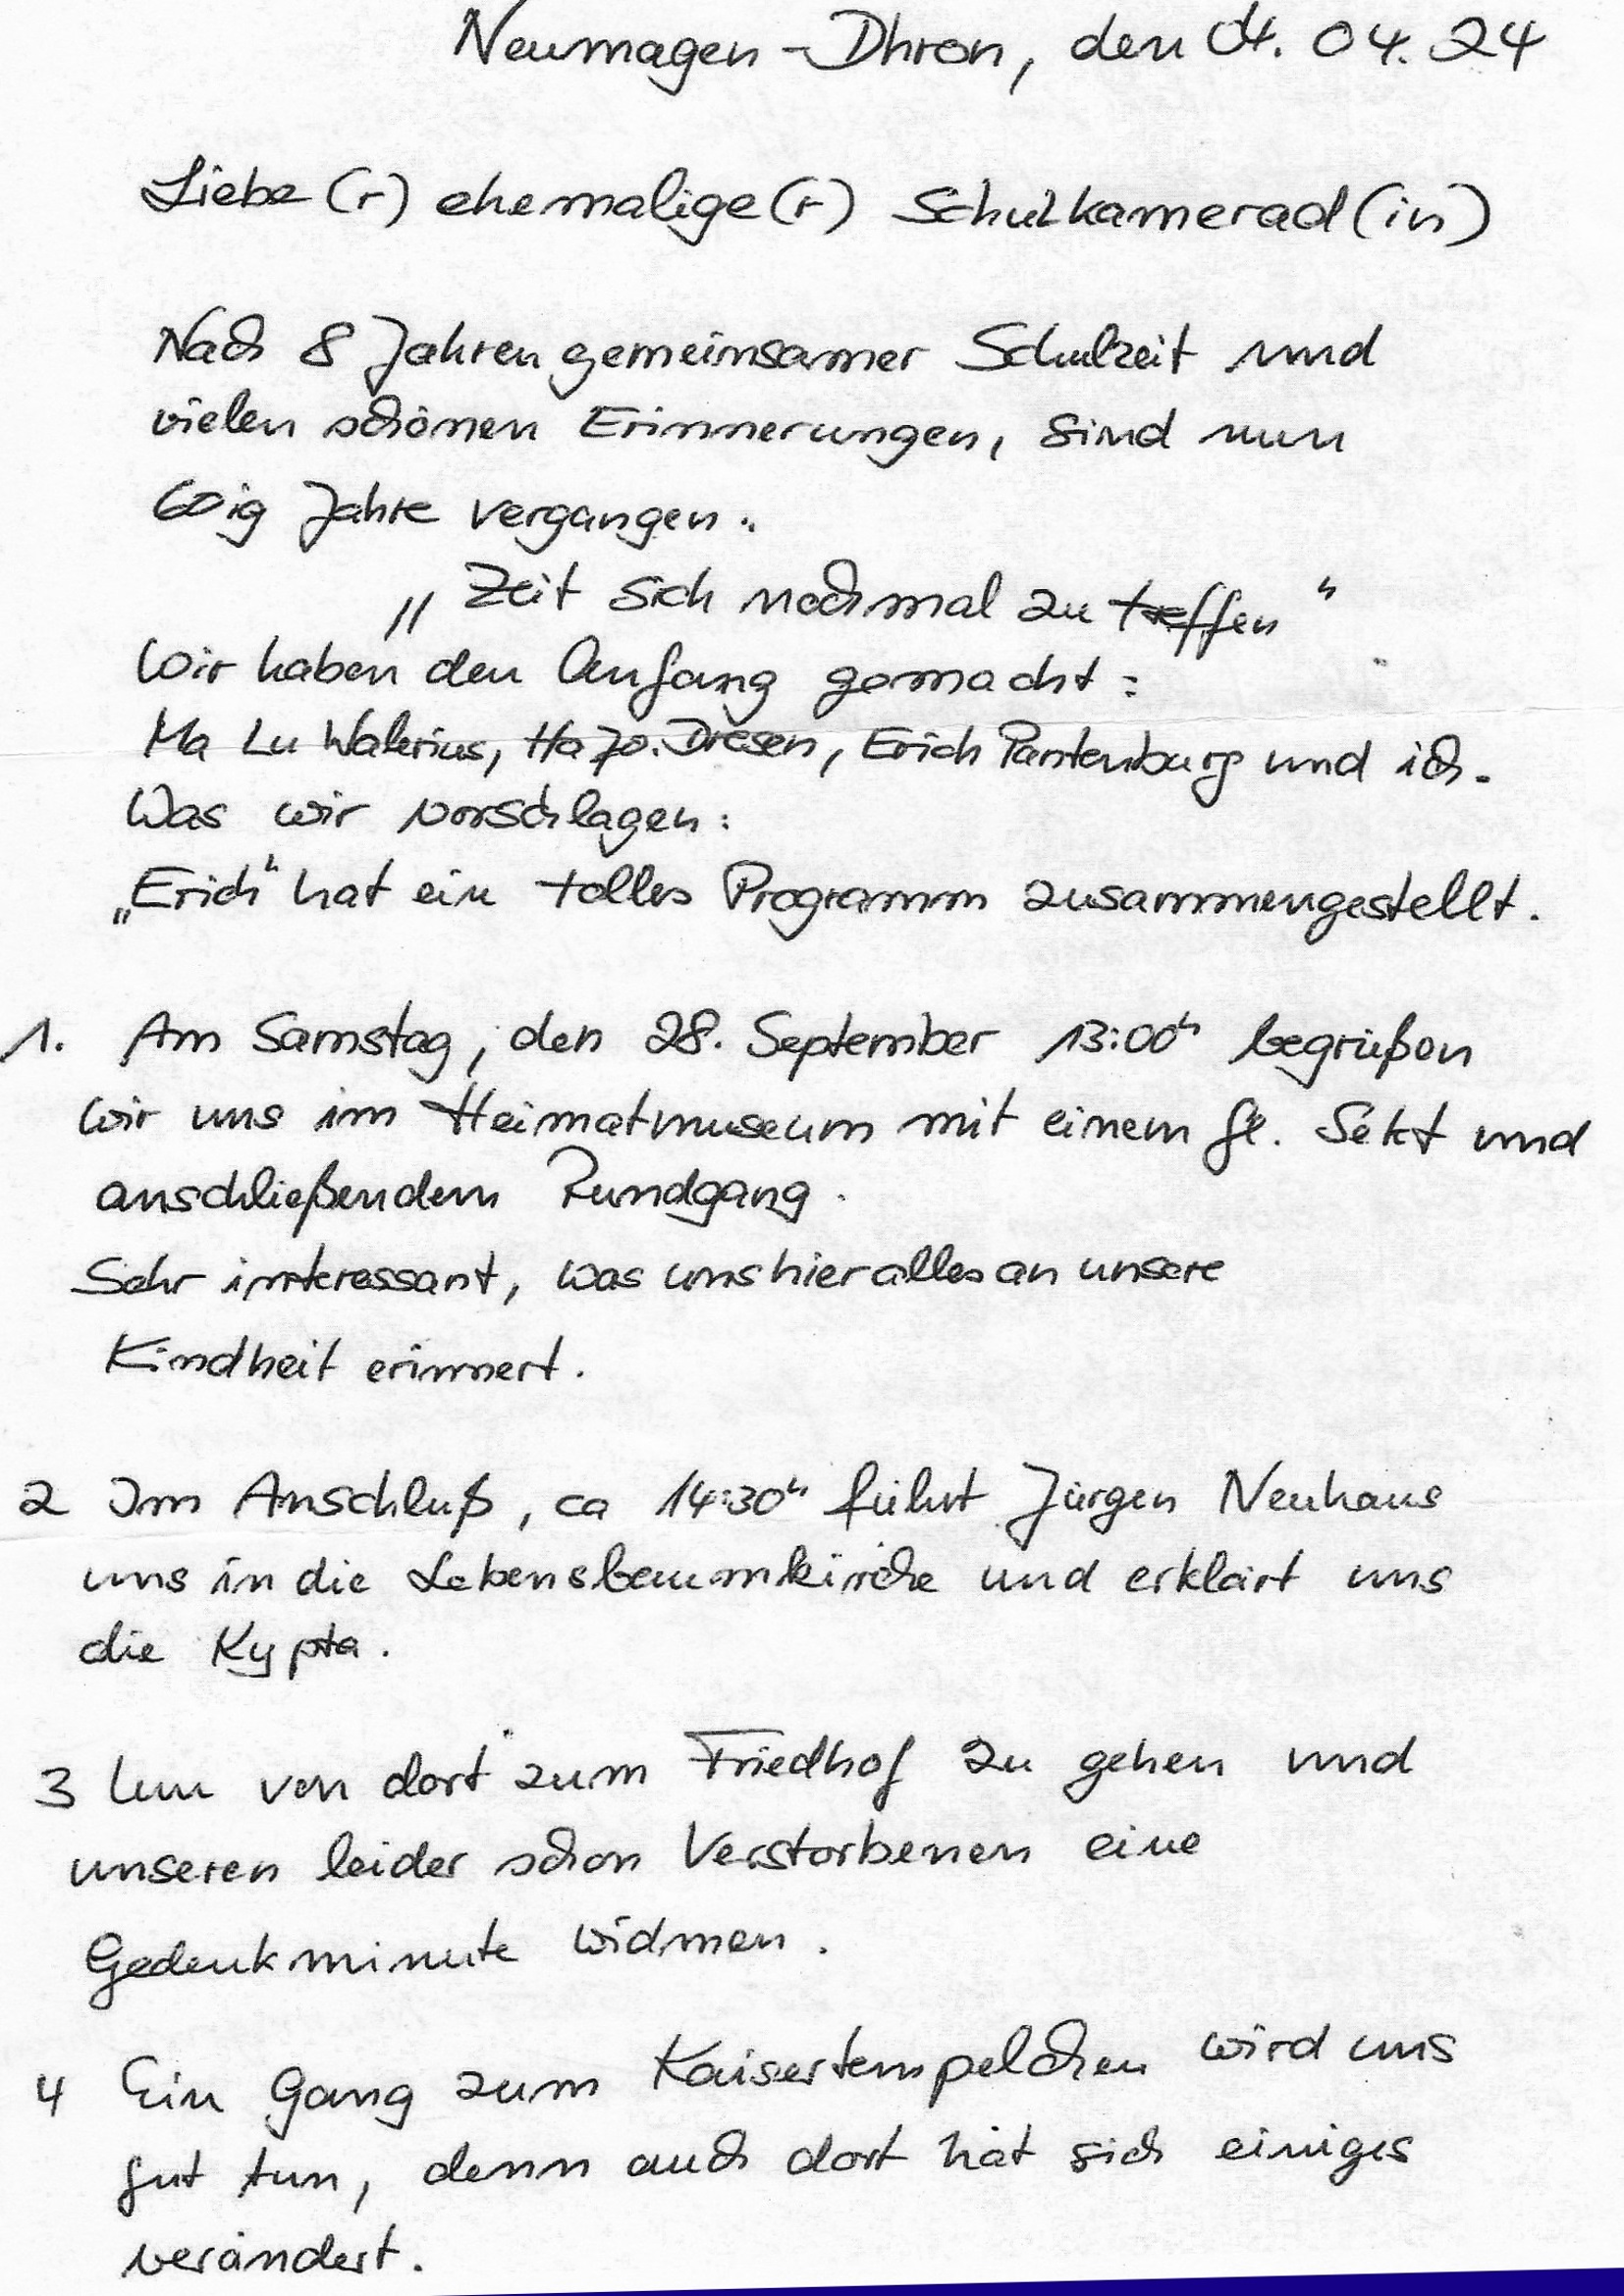 Neumagen-Dhron, den 04.04.24
Liebe(r) ehemalige(r) Schulkamerad(in)
Nach 8 Jahren gemeinsamer Schulzeit und
vielen schönen Erinnerungen, sind nun
60ig Jahre vergangen.
„Zeit sich nochmal zu treffen"
Wir haben den Anfang gemacht:
Ma Lu Walerius, Hajo. Dresen, Erich Pantenburg und ich.
Was wir vorschlagen:
„Erich" hat ein tolles Programm zusammengestellt.
1. Am Samstag, den 28. September 13:00h begrüßen
wir uns im Heimatmuseum mit einem Gl. Sekt und
anschließendem Rundgang.
Sehr interessant, was uns hier alles an unsere
Kindheit erinnert.
2 Im Anschluß, ca 14:30h führt Jürgen Neuhaus
uns in die Lebensbaumkirche und erklärt uns
die Kypta.
3 Um von dort zum Friedhof zu gehen und
unseren leider schon Verstorbenen eine
Gedenkminute widmen.
4 Ein Gang zum Kaisertempelchen wird uns
gut tun, denn auch dort hat sich einiges
verändert.